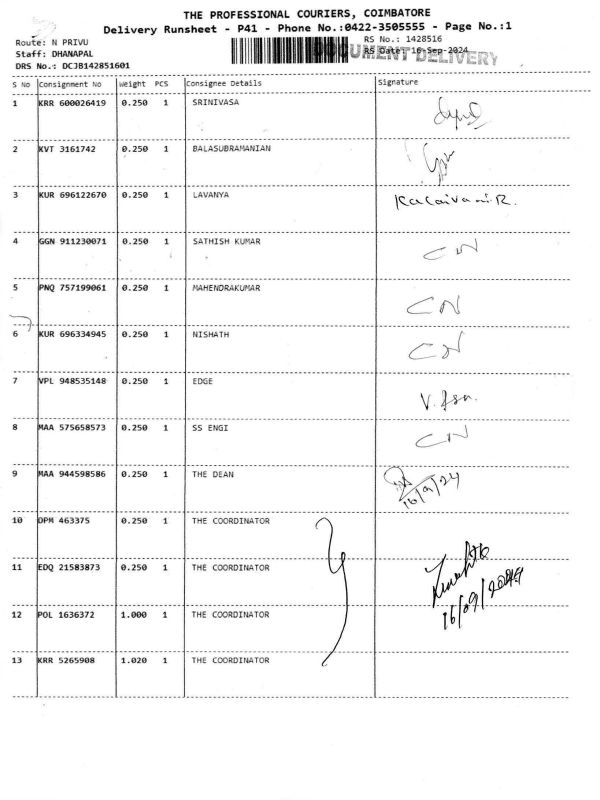 THE PROFESSIONAL COURIERS, COIMBATORE
Delivery Runsheet - P41 - Phone No.:0422-3505555 - Page No.:1
Route: N PRIVU
RS No.: 1428516
Staff: DHANAPAL
DOCUMENT DELIVERY
RS Date: 16-Sep-2024
DRS No.: DCJB142851601
S No Consignment No Weight PCS Consignee Details Signature
1 KRR 600026419 0.250 1 SRINIVASA
2 KVT 3161742 0.250 1 BALASUBRAMANIAN
3 KUR 696122670 0.250 1 LAVANYA Kalaivani.R.
4 GGN 911230071 0.250 1 SATHISH KUMAR CN
5 PNQ 757199061 0.250 1 MAHENDRAKUMAR CN
6 KUR 696334945 0.250 1 NISHATH CN
7 VPL 948535148 0.250 1 EDGE
8 MAA 575658573 0.250 1 SS ENGI CN
9 MAA 944598586 0.250 1 THE DEAN 16/9/24
10 OPM 463375 0.250 1 THE COORDINATOR
11 EDQ 21583873 0.250 1 THE COORDINATOR
12 POL 1636372 1.000 1 THE COORDINATOR 16/09/2024
13 KRR 5265908 1.020 1 THE COORDINATOR